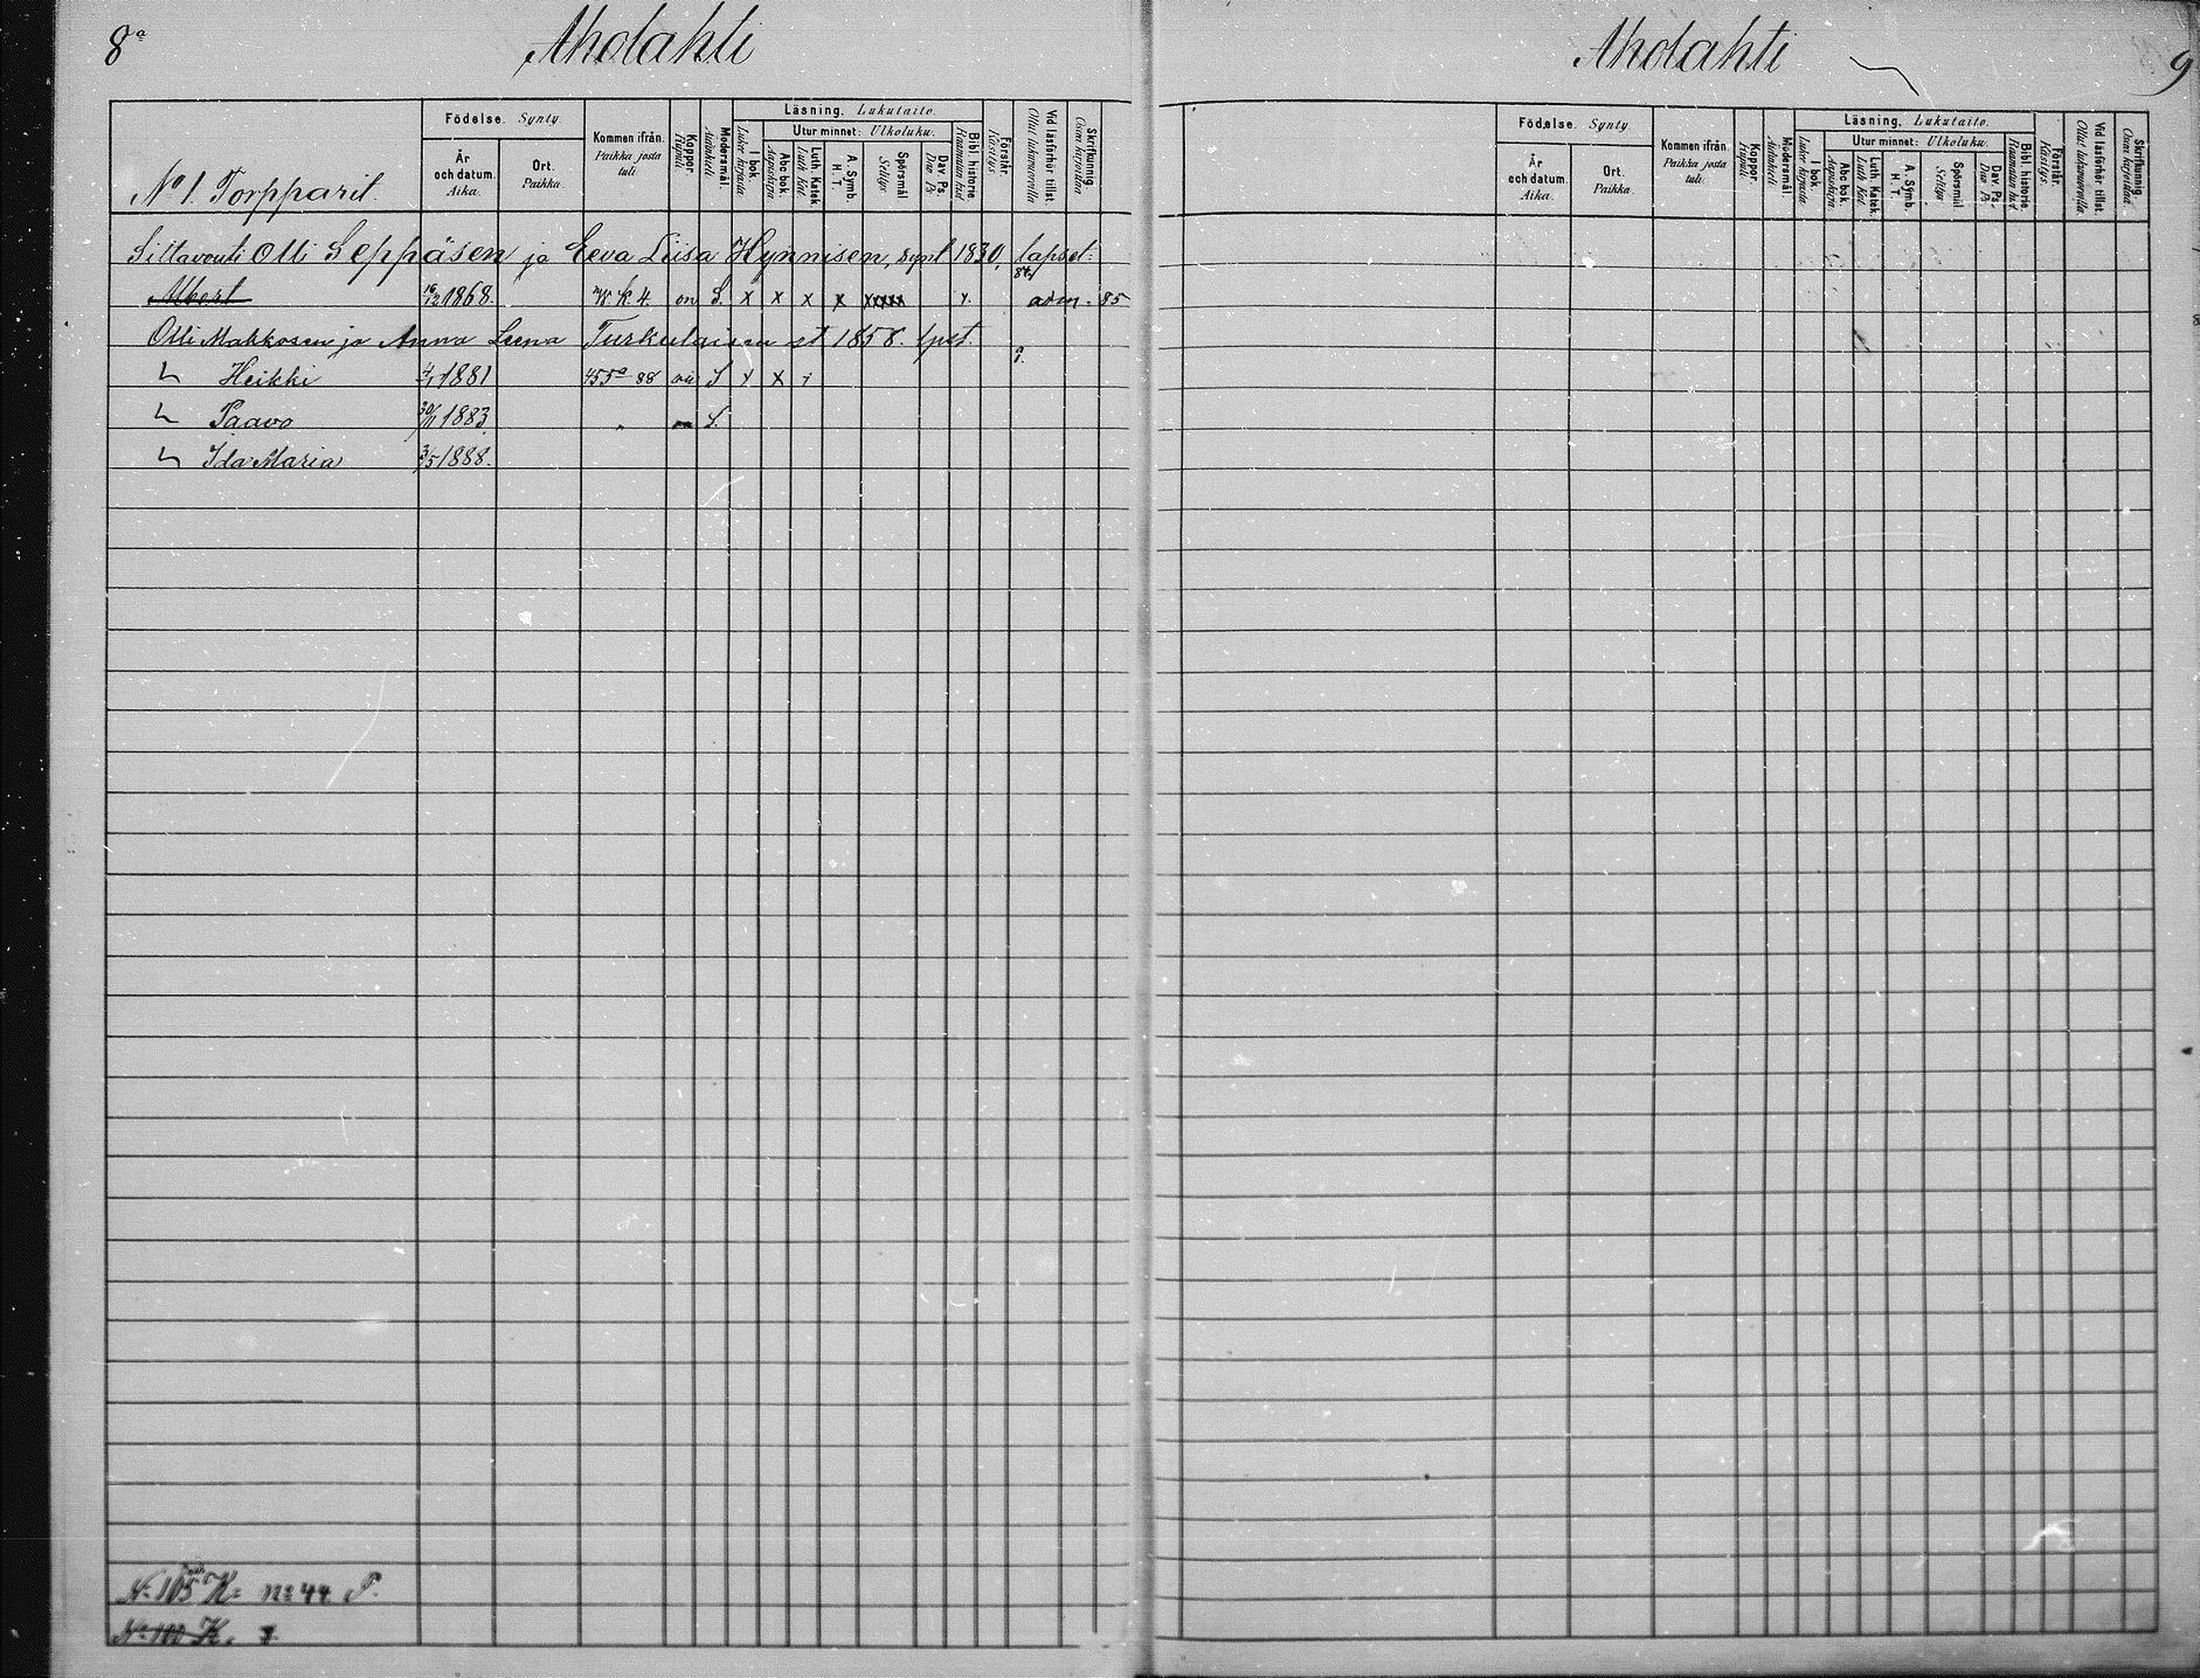 8a
Aholahti
Födelse. Synty.
År och datum. Aika.
Ort. Paikka.
Kommen ifrån. Paikka josta tuli.
Koppor. Rupuli.
Modersmål. Äidinkieli
Läsning. Lukutaito.
I bok. Lukee kirjasta
Utur minnet: Ulkoluku.
Abc bok. Aapiskirja.
Luth. Katek. Luth Kat.
A. Symb. H. T.
Spörsmål Selitys
Dav. Ps. Dav. Ps.
Bibl. historie. Raamatun hist
Förstår. Käsitys.
Vid läsförhör tillst. Ollut lukuvuorolla
Skrifkunnig. Osaa kirjoittaa
No 1. Torpparit.
Siltavouti Olli Seppäsen ja Eeva Liisa Hynnisen, synt 1830, lapset:
Albert 16/12 1868. K 4. on S. x x x x xxxxx x. 84/ adm. 85
Olli Mahkosen ja Anna Leena Turkulaisen st 1858. lpst.
Heikki 4/1 1881 455a 88 on S x x
Paavo 30/11 1883 " on S.
Ida Maria 3/5 1888.
No 105 K= No 44 P.
No 110 K. 7
Aholahti
9
Födelse. Synty.
År och datum. Aika.
Ort. Paikka.
Kommen ifrån. Paikka josta tuli.
Koppor. Rupuli.
Modersmål. Äidinkieli
Läsning. Lukutaito.
I bok. Lukee kirjasta
Utur minnet: Ulkoluku.
Abc bok. Aapiskirja.
Luth. Katek. Luth Kat.
A. Symb. H. T.
Spörsmål. Selitys
Dav. Ps. Dav. Ps.
Bibl. historie. Raamatun hist.
Förstår. Käsitys.
Vid läsförhör tillst. Ollut lukuvuorolla.
Skrifkunnig. Osaa kirjoittaa